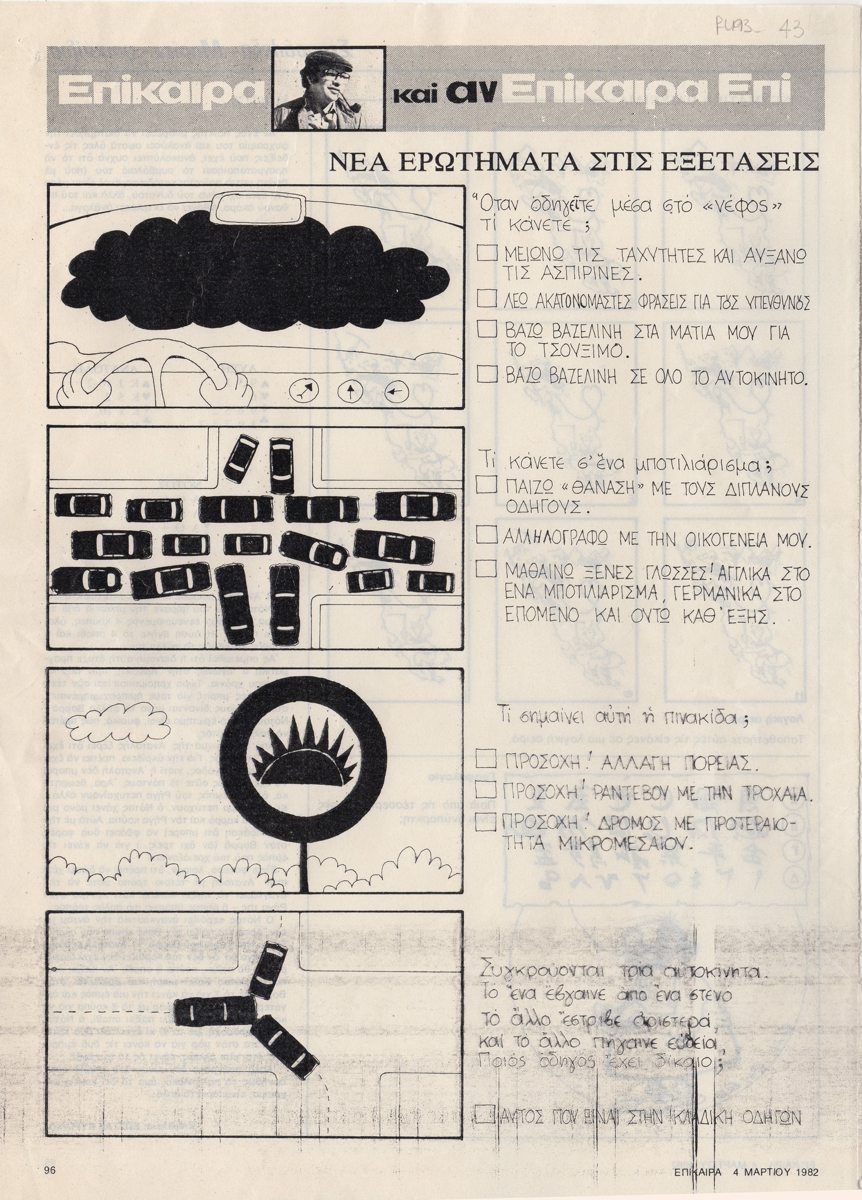 RU93- 43
Επίκαιρα και αν Επίκαιρα Επί
ΝΕΑ ΕΡΩΤΗΜΑΤΑ ΣΤΙΣ ΕΞΕΤΑΣΕΙΣ
Ὅταν ὁδηγεῖτε μέσα στό «νέφος»
τί κάνετε ;
ΜΕΙΩΝΩ ΤΙΣ ΤΑΧΥΤΗΤΕΣ ΚΑΙ ΑΥΞΑΝΩ
ΤΙΣ ΑΣΠΙΡΙΝΕΣ.
ΛΕΩ ΑΚΑΤΟΝΟΜΑΣΤΕΣ ΦΡΑΣΕΙΣ ΓΙΑ ΤΟΥΣ ΥΠΕΥΘΥΝΟΥΣ
ΒΑΖΩ ΒΑΖΕΛΙΝΗ ΣΤΑ ΜΑΤΙΑ ΜΟΥ ΓΙΑ
ΤΟ ΤΣΟΥΞΙΜΟ.
ΒΑΖΩ ΒΑΖΕΛΙΝΗ ΣΕ ΟΛΟ ΤΟ ΑΥΤΟΚΙΝΗΤΟ.
Τί κάνετε σ' ἕνα μποτιλιάρισμα ;
ΠΑΙΖΩ «ΘΑΝΑΣΗ» ΜΕ ΤΟΥΣ ΔΙΠΛΑΝΟΥΣ
ΟΔΗΓΟΥΣ.
ΑΛΛΗΛΟΓΡΑΦΩ ΜΕ ΤΗΝ ΟΙΚΟΓΕΝΕΙΑ ΜΟΥ.
ΜΑΘΑΙΝΩ ΞΕΝΕΣ ΓΛΩΣΣΕΣ! ΑΓΓΛΙΚΑ ΣΤΟ
ΕΝΑ ΜΠΟΤΙΛΙΑΡΙΣΜΑ, ΓΕΡΜΑΝΙΚΑ ΣΤΟ
ΕΠΟΜΕΝΟ ΚΑΙ ΟΥΤΩ ΚΑΘ' ΕΞΗΣ.
Τί σημαίνει αὐτή ἡ πινακίδα ;
ΠΡΟΣΟΧΗ! ΑΛΛΑΓΗ ΠΟΡΕΙΑΣ.
ΠΡΟΣΟΧΗ! ΡΑΝΤΕΒΟΥ ΜΕ ΤΗΝ ΤΡΟΧΑΙΑ.
ΠΡΟΣΟΧΗ! ΔΡΟΜΟΣ ΜΕ ΠΡΟΤΕΡΑΙΟ-
ΤΗΤΑ ΜΙΚΡΟΜΕΣΑΙΟΥ.
Συγκρούονται τρία αὐτοκίνητα.
Τό ἕνα ἔβγαινε ἀπό ἕνα στενό
Τό ἄλλο ἔστριβε ἀριστερά,
καί τό ἄλλο πήγαινε εὐθεία,
Ποιός ὁδηγός ἔχει δίκαιο ;
ΑΥΤΟΣ ΠΟΥ ΕΙΝΑΙ ΣΤΗΝ ΚΛΑΔΙΚΗ ΟΔΗΓΩΝ
96
ΕΠΙΚΑΙΡΑ 4 ΜΑΡΤΙΟΥ 1982